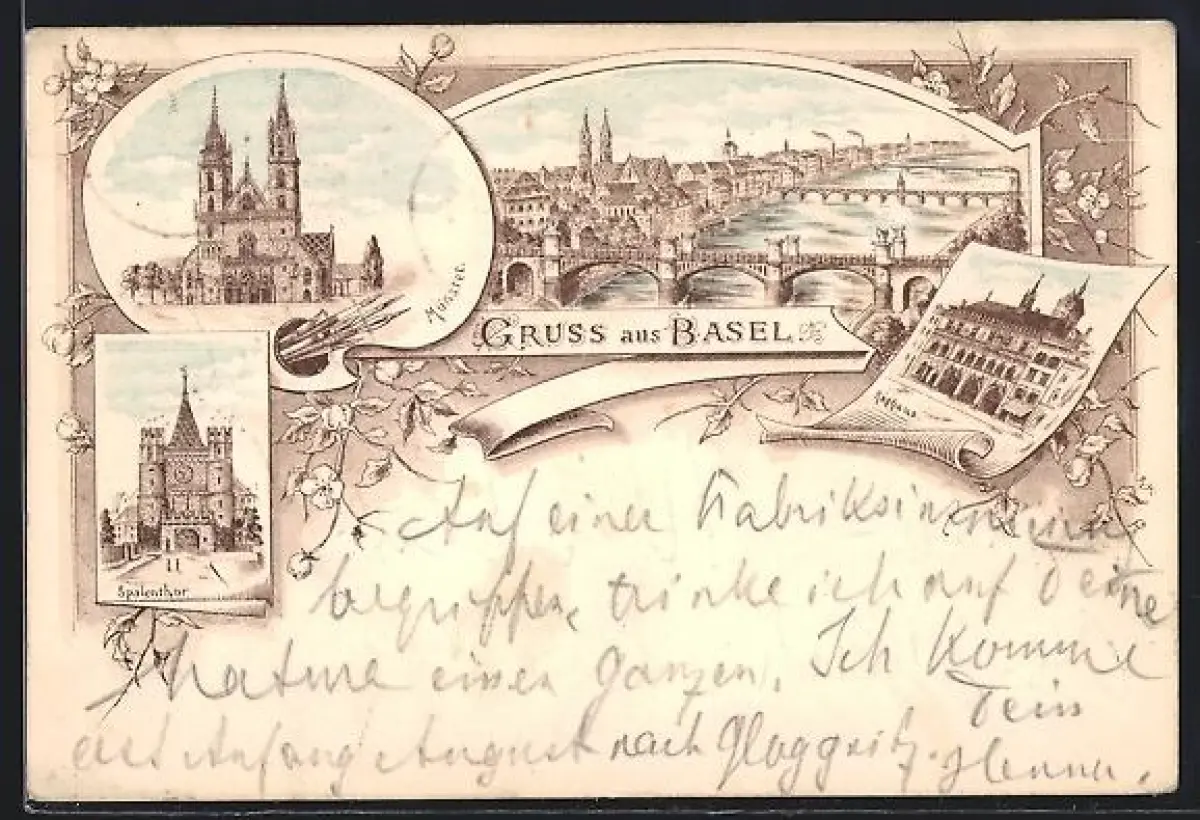 Münster.
GRUSS aus BASEL
Rathaus
Spalenthor
Auf einer
begriffen, trinke ich auf Deine
Mature einen Ganzen. Ich komme
erst Anfang August nach Gloggnitz.
Dein